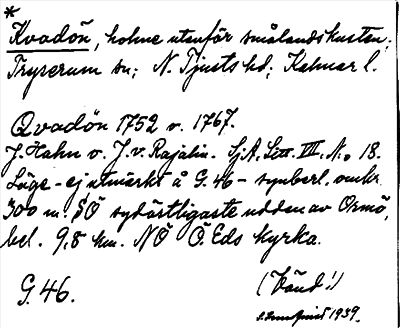 *
Kvadön, holme utanför smålandskusten;
Tryserum sn; N. Tjusts hd; Kalmar l.
Qvadön 1752 v. 1767.
J. Hahn o. J. v. Rajalin. Sj.A. Sett. VII. N:o 18.
Läge - ej utmärkt å G. 46 - synberl. omkr.
300 m. SÖ sydöstligaste udden av Ormö,
bel. 9,8 km. NÖ Ö. Eds kyrka.
G. 46.
(Vänd!)
1939.